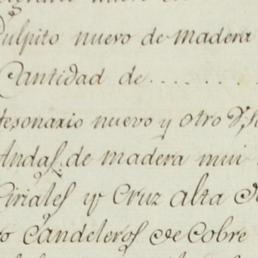 Pulpito nuevo de madera
Cantidad de ........
fesonario nuevo y otro
Andas, de madera mui
Ciriales y Cruz alta de
candeleros de Cobre